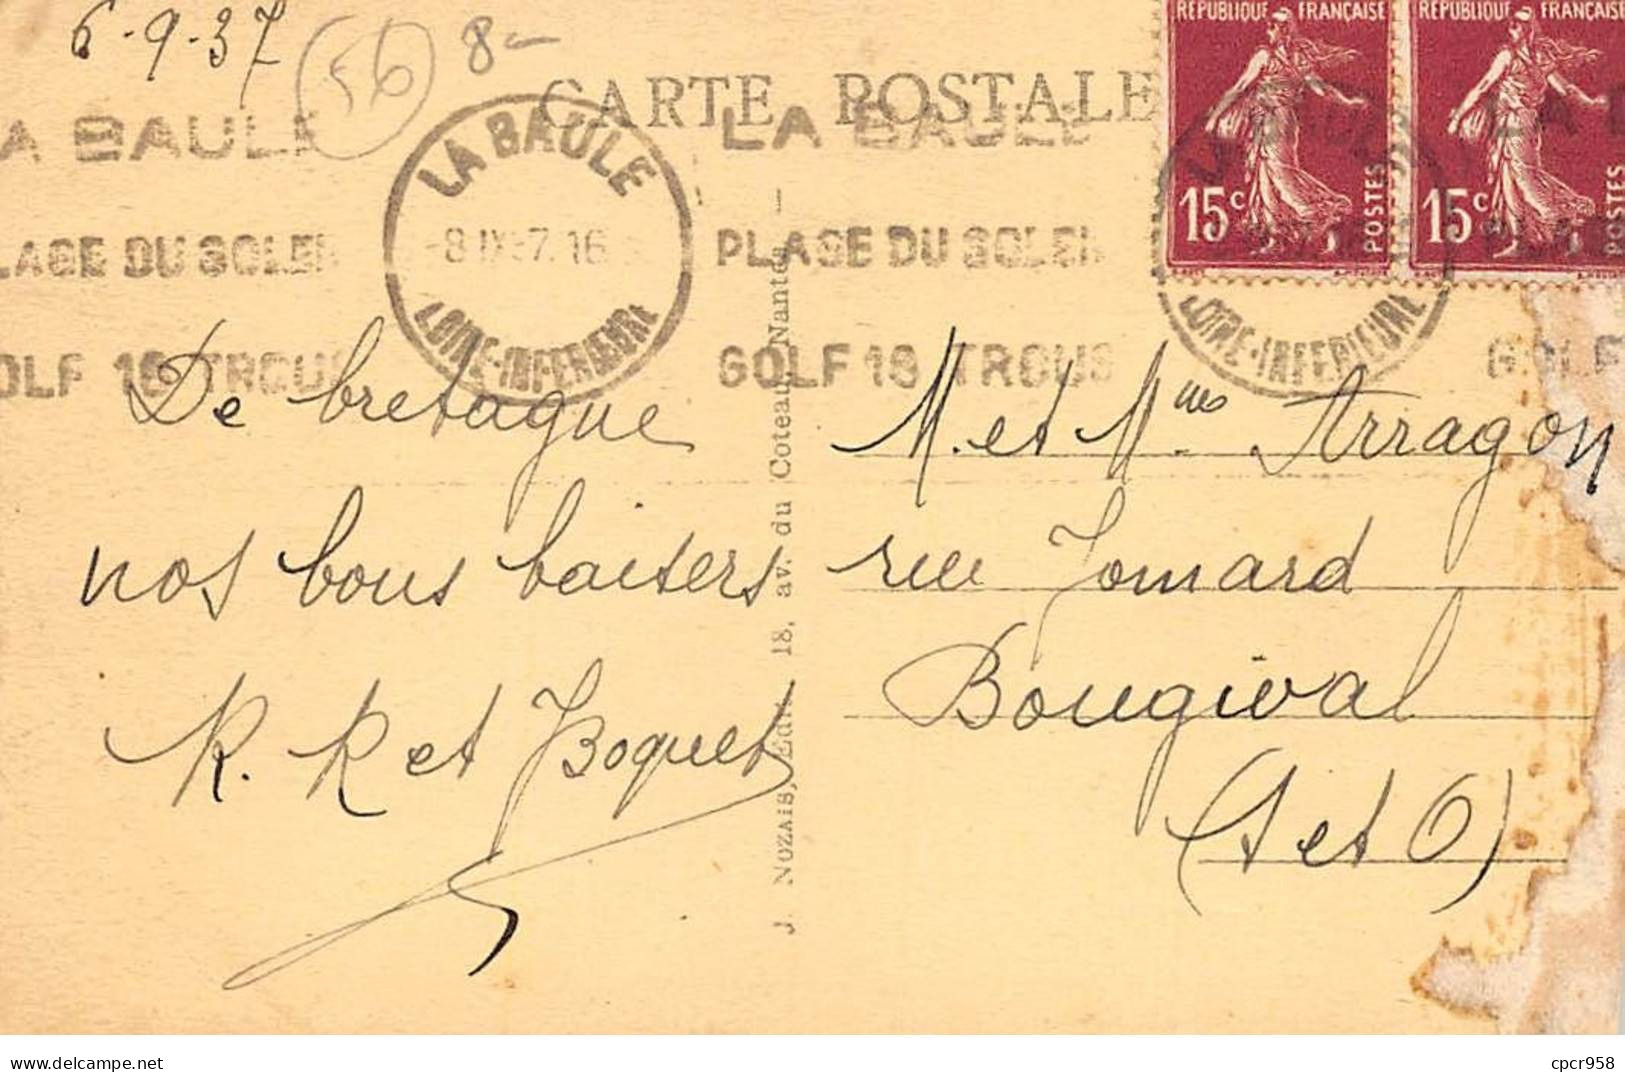 6-9-37
56
8-
CARTE POSTALE
LA BAULE
PLAGE DU SOLEIL
GOLF 18 TROUS
LA BAULE
-8 IX-7. 16
LOIRE-INFERIEURE
LA BAULE
PLAGE DU SOLEIL
GOLF 18 TROUS
REPUBLIQUE FRANÇAISE
15c
POSTES
REPUBLIQUE FRANÇAISE
15c
POSTES
LOIRE-INFERIEURE
GOLF
De bretagne
nos bons baisers
R. R et J Boquet
J. NOZAIS, Edit., 18, av. du Coteau, Nantes
M. et Mmes Arragon
rue Jomard
Bougival
(S et O)
cpcr958